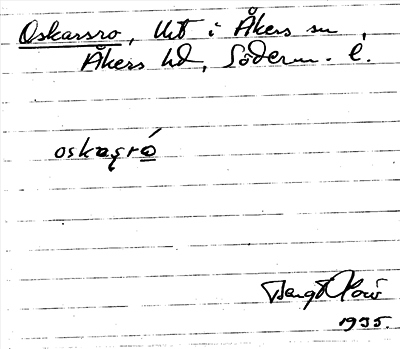 Oskarsro, lht i Åkers sn,
Åkers hd, Söderm. l.
oskaşrò́
Bengt
1935.